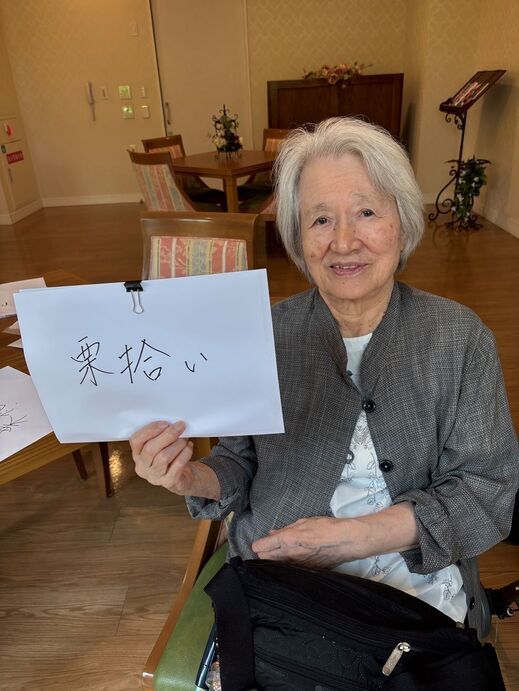 栗拾い